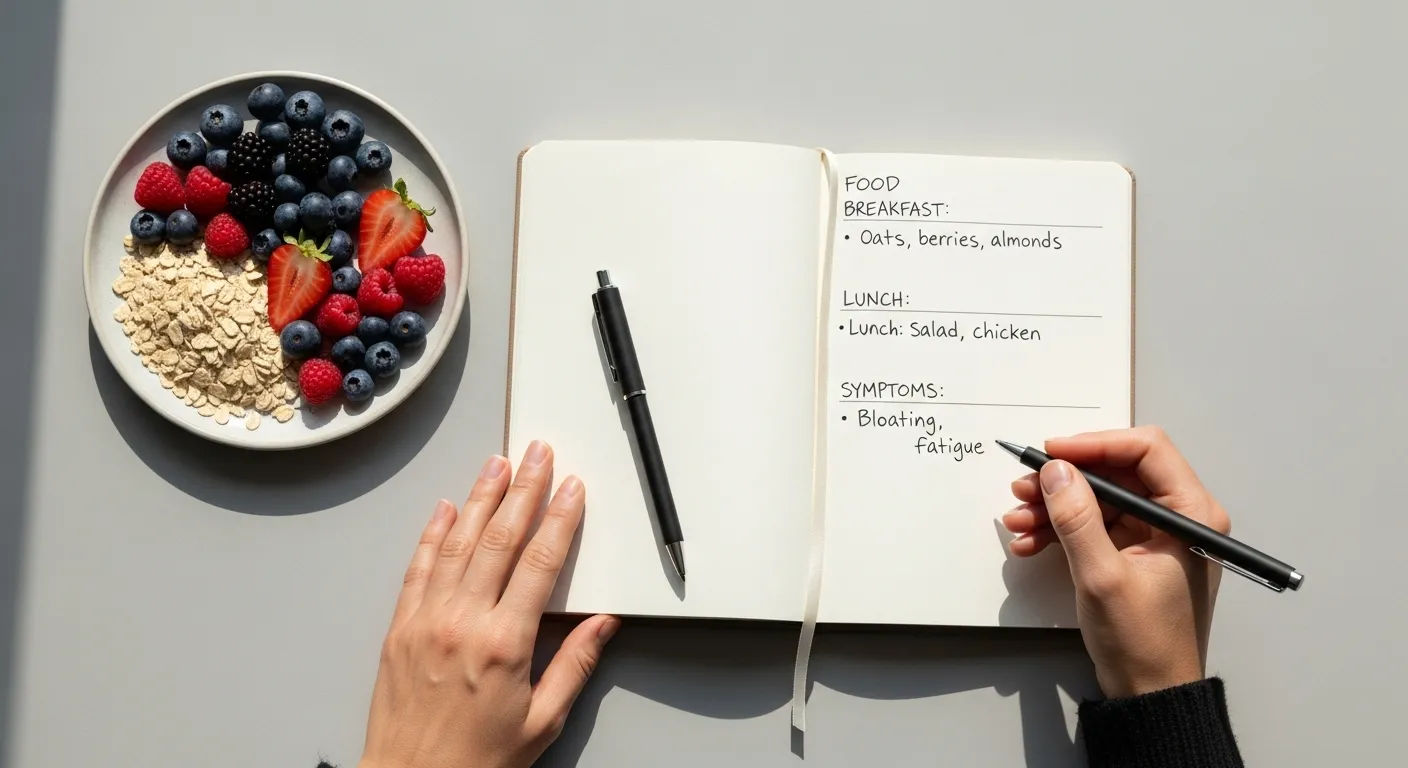 FOOD
BREAKFAST:
• Oats, berries, almonds
LUNCH:
• Lunch: Salad, chicken
SYMPTOMS:
• Bloating,
fatigue